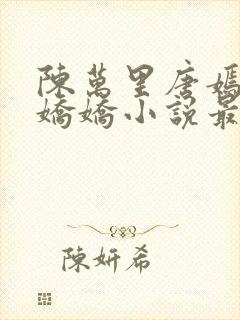 陳萬里唐嫣
嬌嬌小說最
陳妍希